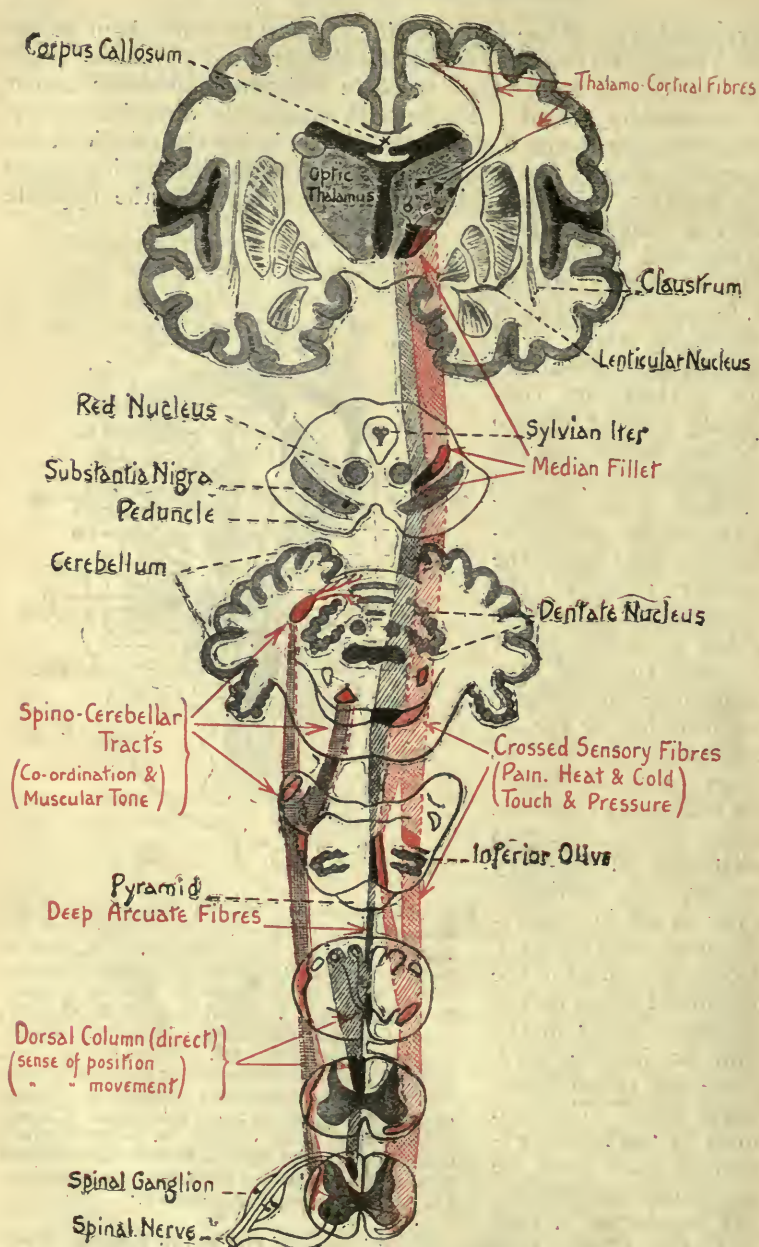 Corpus Callosum
Thalamo-Cortical Fibres
Optic
Thalamus
Claustrum
Lenticular Nucleus
Red Nucleus
Sylvian Iter
Substantia Nigra
Median Fillet
Peduncle
Cerebellum
Dentate Nucleus
Spino-Cerebellar
Tracts
(Co-ordination &
Muscular Tone)
Crossed Sensory Fibres
(Pain. Heat & Cold
Touch & Pressure)
Inferior Olive
Pyramid
Deep Arcuate Fibres
Dorsal Column (direct)
(sense of position
" " movement)
Spinal Ganglion
Spinal Nerve